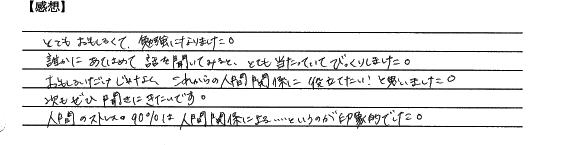 【感想】
とてもおもしろくて、勉強になりました。
誰かにあてはめて話を聞いてみると、とても当たっていてびっくりしました。
おもしろいだけじゃなく、これからの人間関係に役立てたい！と思いました。
次もぜひ聞きにきたいです。
人間のストレスの90%は人間関係による……というのが印象的でした。